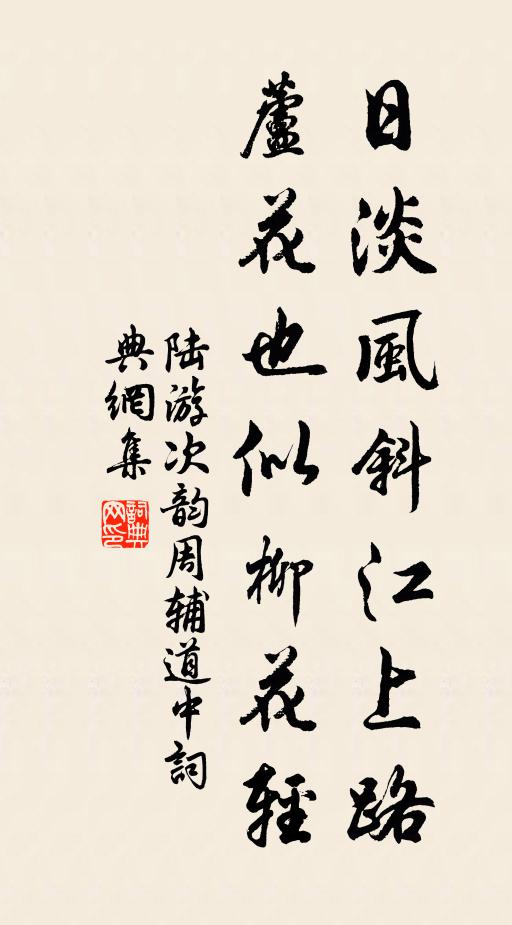 日淡風斜江上路
蘆花也似柳花輕
陆游次韵周辅道中詞
典網集
詞典
网印